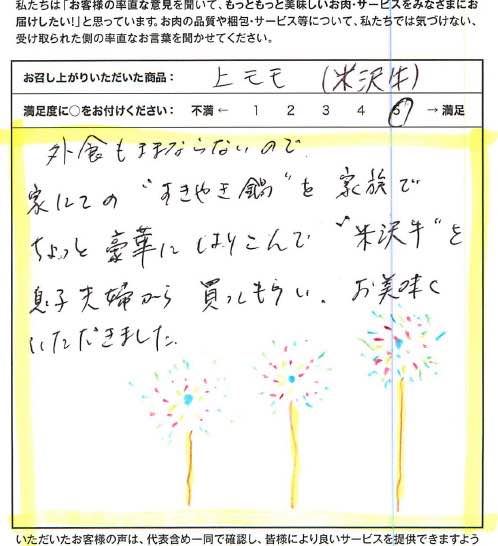 私たちは「お客様の率直な意見を聞いて、もっともっと美味しいお肉・サービスをみなさまにお
届けしたい!」と思っています。お肉の品質や梱包・サービス等について、私たちでは気づけない、
受け取られた側の率直なお言葉を聞かせてください。
お召し上がりいただいた商品: 上モモ (米沢牛)
満足度に○をお付けください: 不満 ← 1 2 3 4 5 → 満足
外食もままならないので
家にての "すきやき鍋" を 家族で
ちょっと豪華にはりこんで "米沢牛" を
息子夫婦から 買ってもらい、お美味く
いただきました。
いただいたお客様の声は、代表含め一同で確認し、皆様により良いサービスを提供できますよう